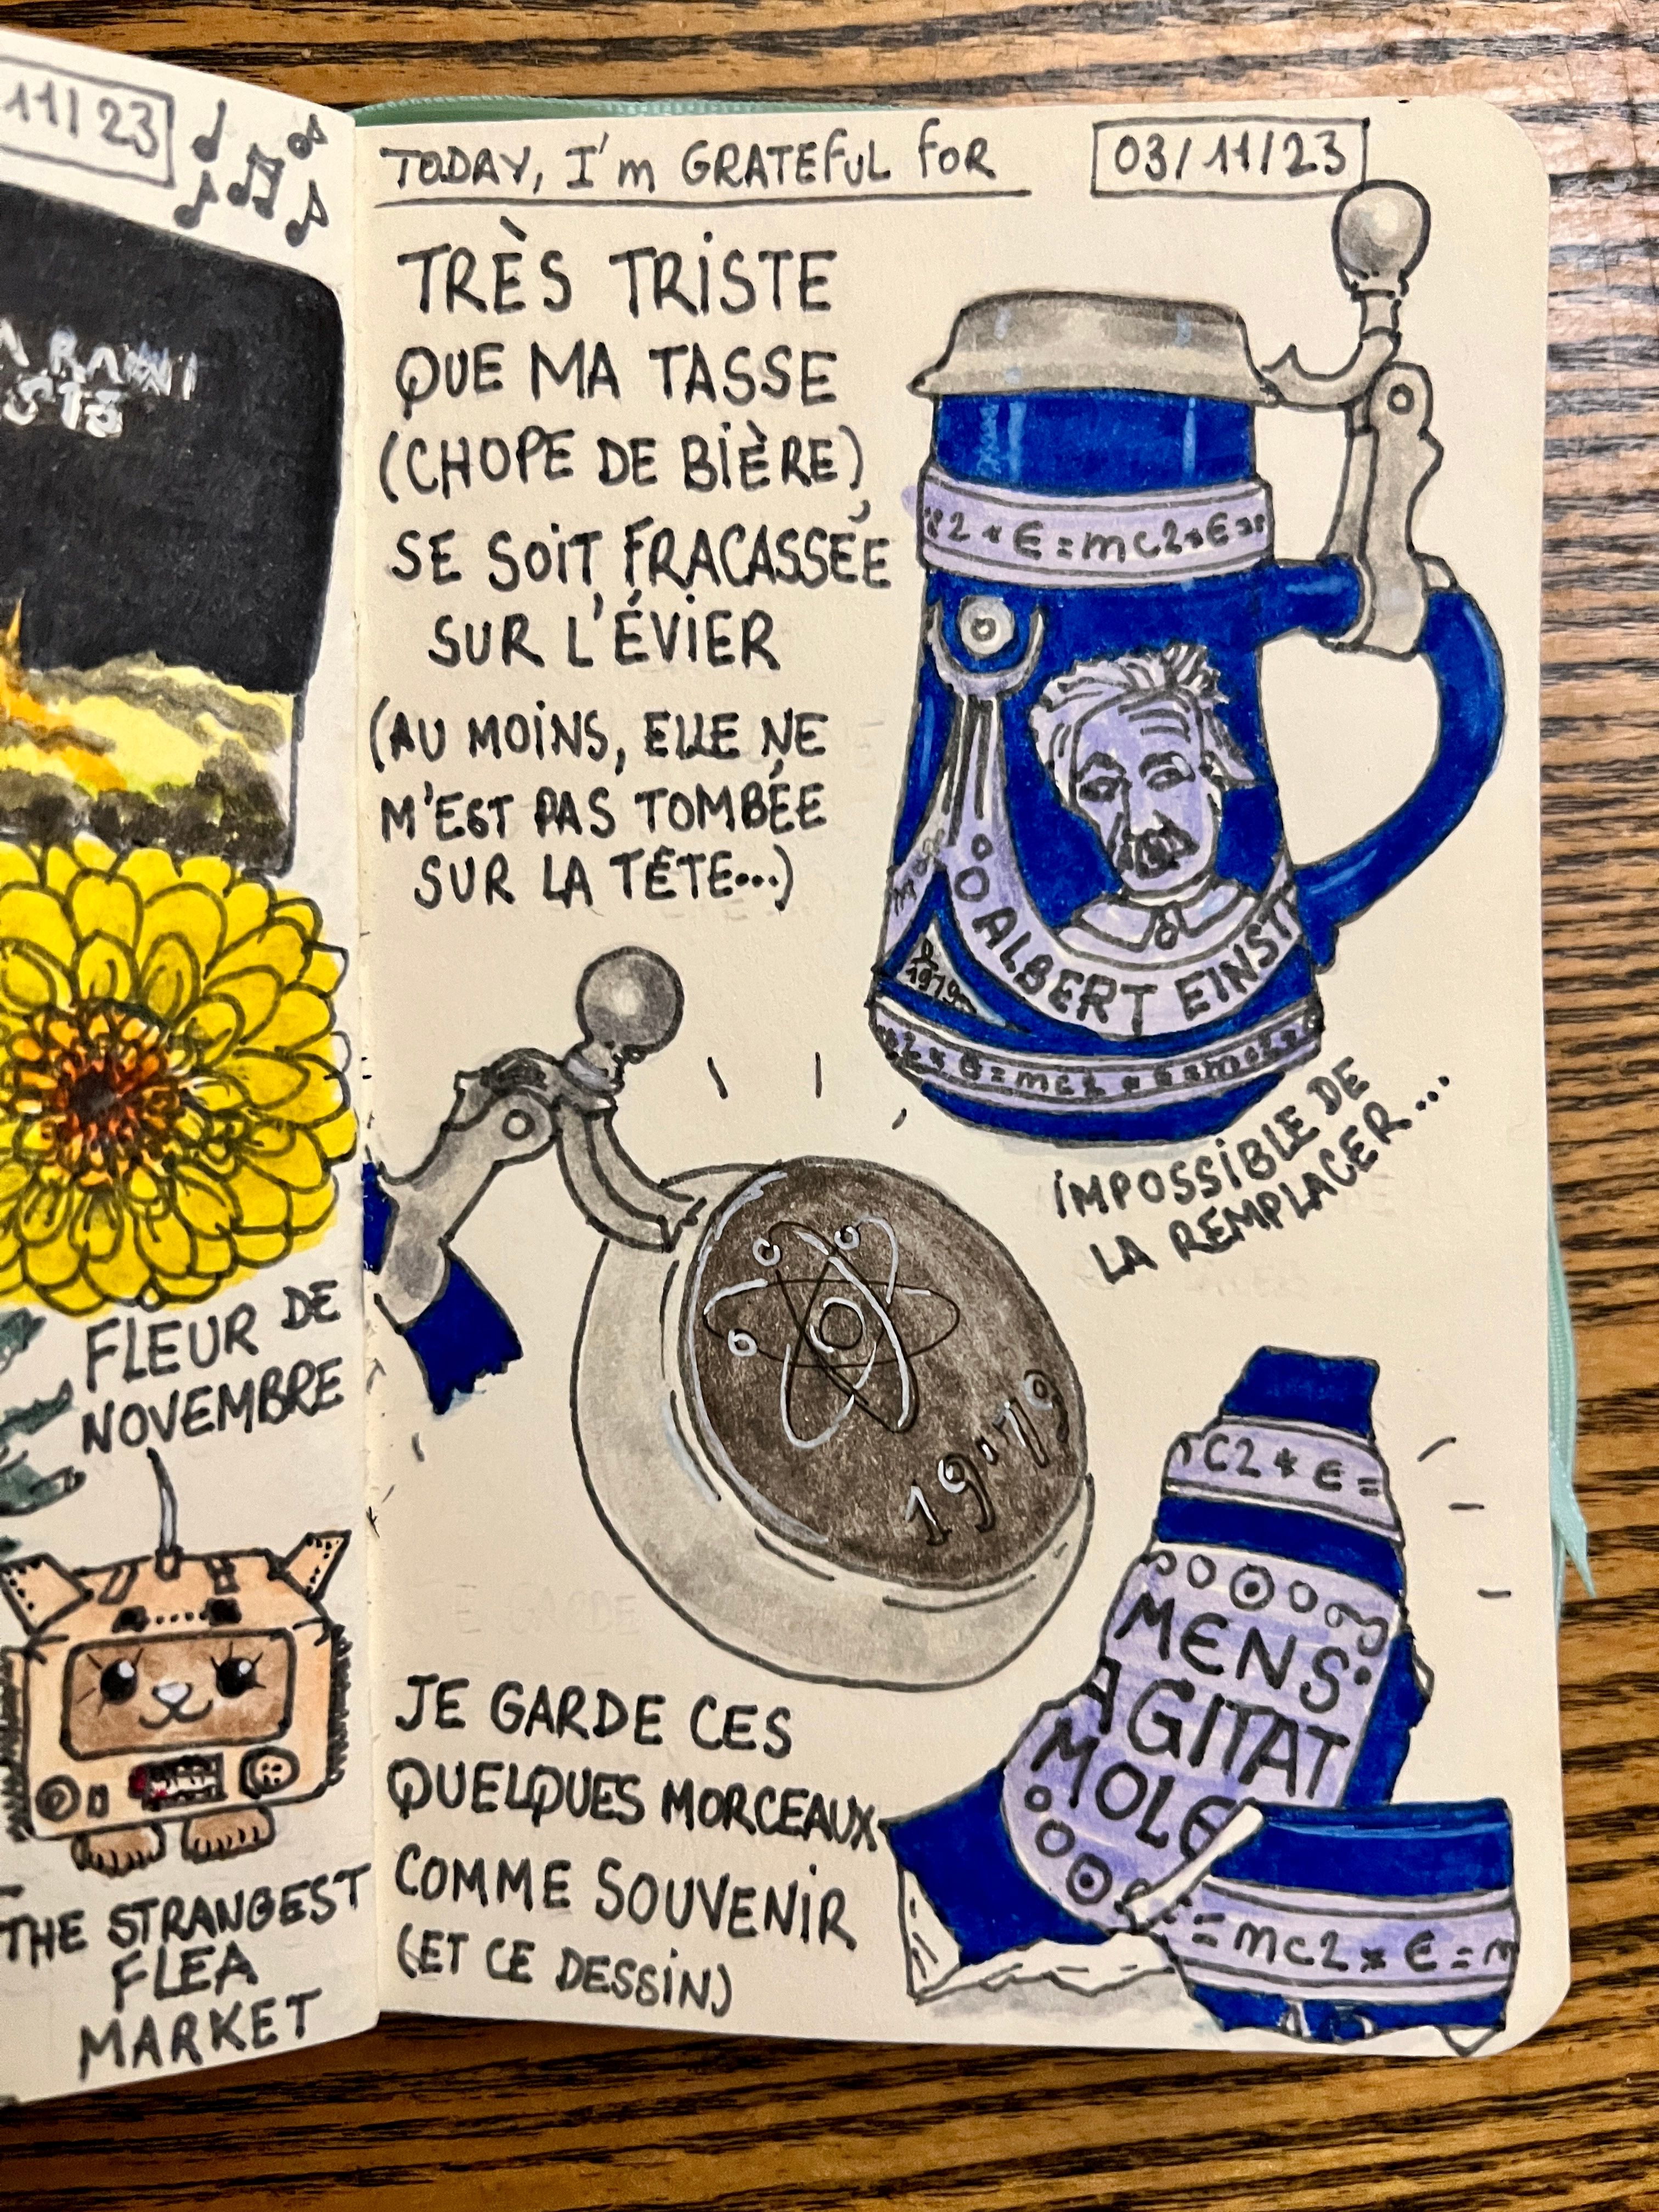 11/23
RANI
TODAY, I'm GRATEFUL FOR
03/11/23
TRÈS TRISTE
QUE MA TASSE
(CHOPE DE BIÈRE)
SE SOIT FRACASSÉE
SUR L'ÉVIER
(AU MOINS, ELLE NE
M'EST PAS TOMBÉE
SUR LA TÊTE...)
2 * E = mc2 * E =
ALBERT EINST
1979
2 * E = mc2 * E = mc2
IMPOSSIBLE DE
LA REMPLACER...
19·79
C2 * E =
MENS·
AGITAT
MOLE
= mc2 * E = m
JE GARDE CES
QUELQUES MORCEAUX
COMME SOUVENIR
(ET CE DESSIN)
FLEUR DE
NOVEMBRE
THE STRANGEST
FLEA
MARKET